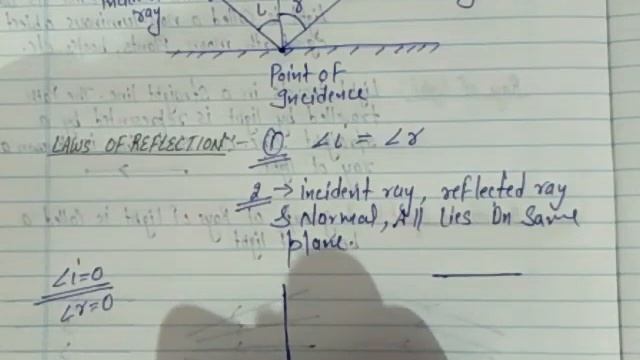 ray
i r
Point of
Incidence
LAWS OF REFLECTION :- ① ∠i = ∠r
2 → incident ray, reflected ray
& Normal, All Lies On Same
plane.
∠i=0
∠r=0